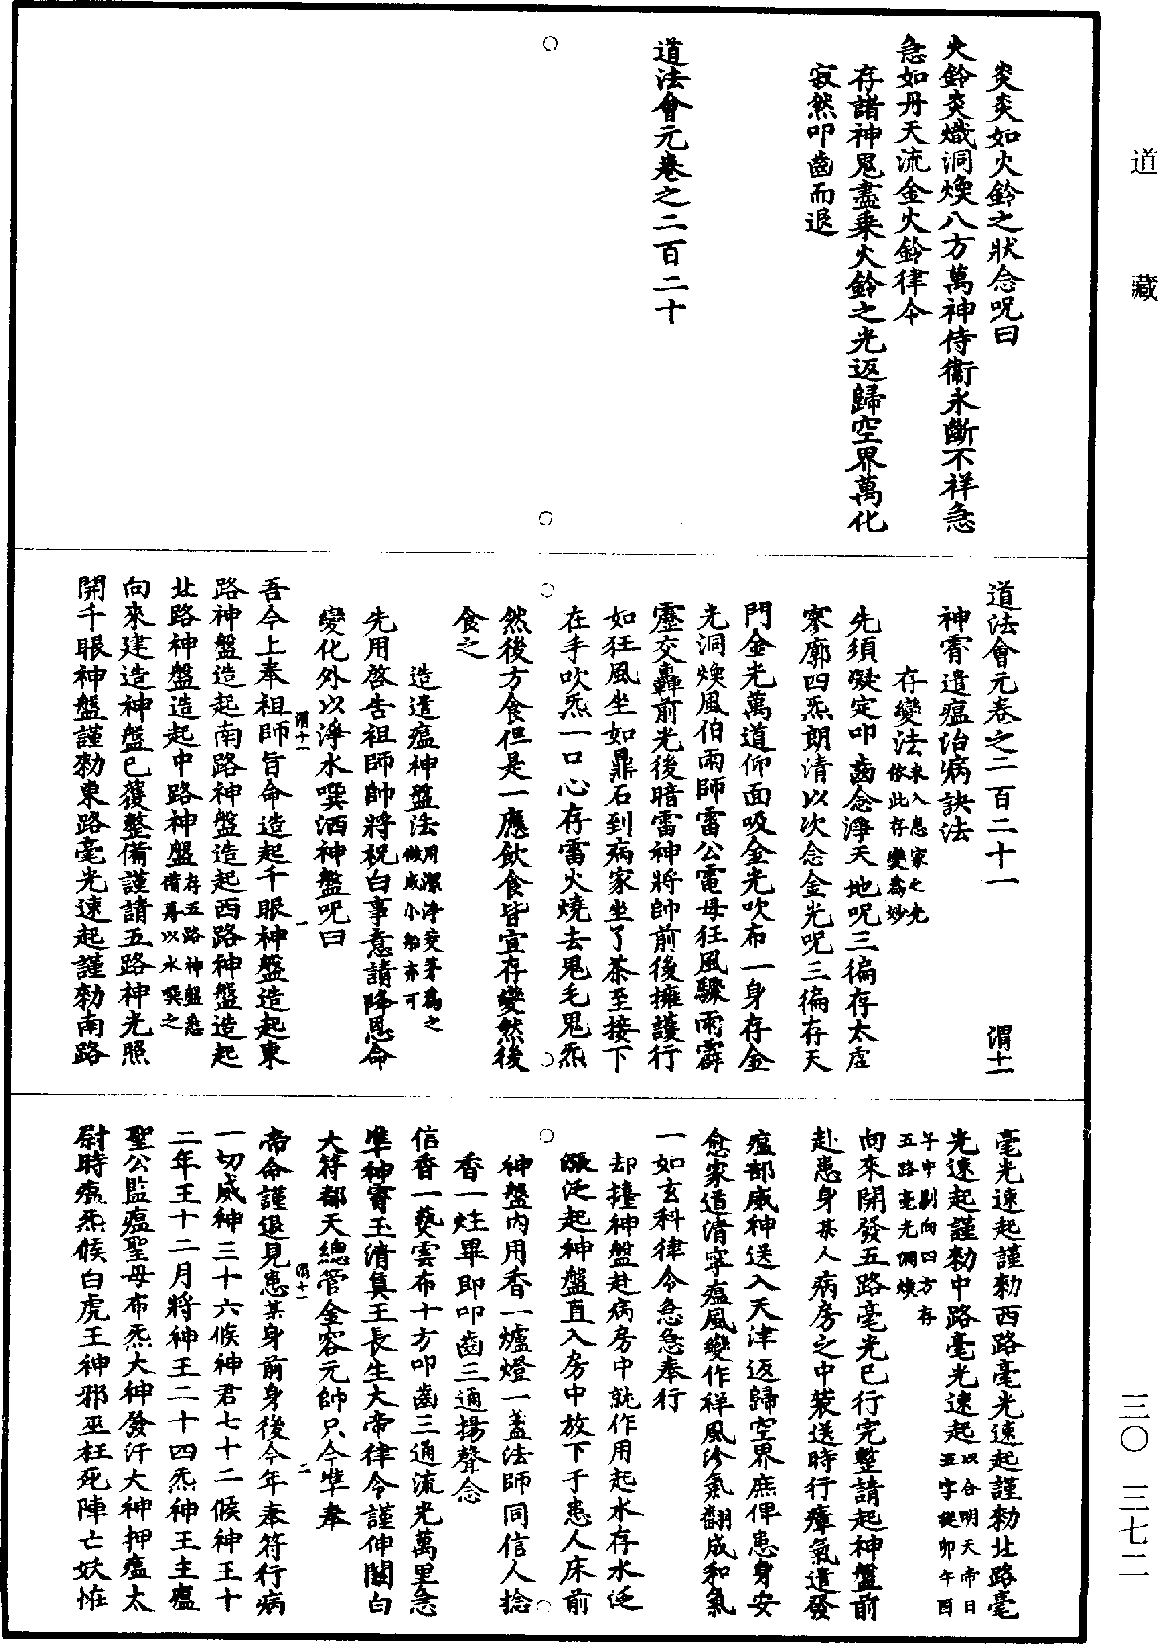 道藏
炎炎如火鈴之狀念呪曰
火鈴炎熾洞煥八方萬神侍衞永斷不祥急
急如丹天流金火鈴律令
存諸神鬼盡乗火鈴之光返歸空界萬化
寂然叩齒而退
道法會元卷之二百二十
道法會元卷之二百二十一 渭十一
神霄遣瘟治病訣法
存變法未入患家之先
依此存變爲妙
先須凝定叩齒念淨天地呪三徧存太虛
寥廓四炁朗清以次念金光呪三徧存天
門金光萬道仰面吸金光吹布一身存金
光洞煥風伯雨師雷公電母狂風驟雨霹
靂交轟前光後暗雷神將帥前後擁護行
如狂風坐如鼎石到病家坐了茶至接下
在手吹炁一口心存雷火燒去鬼毛鬼炁
然後方食但是一應飲食皆宜存變然後
食之
造遣瘟神盤法用潔淨茭茅爲之
做成小船亦可
先用啓告祖師帥將祝白事意請降恩命
變化外以淨水噀洒神盤呪曰
渭十一 一
吾今上奉祖師旨命造起千眼神盤造起東
路神盤造起南路神盤造起西路神盤造起
北路神盤造起中路神盤存五路神盤悉
備再以水噀之
向來建造神盤已獲整備謹請五路神光照
開千眼神盤謹勑東路毫光速起謹勑南路
毫光速起謹勑西路毫光速起謹勑北路毫
光速起謹勑中路毫光速起以合明天帝日
五字從卯午酉
子中剔向四方存
五路毫光烱煥
向來開發五路毫光已行完整請起神盤前
赴患身某人病房之中裝送時行瘴氣遣發
瘟部威神送入天津返歸空界庶俾患身安
愈家道清寧瘟風變作祥風沴氣翻成和氣
一如玄科律令急急奉行
却擡神盤赴病房中就作用起水存水泛
漲泛起神盤直入房中放下于患人床前
神盤內用香一爐燈一盞法師同信人捻
香一炷畢即叩齒三通揚聲念
信香一爇雲布十方叩齒三通流光萬里急
準神霄玉清真王長生大帝律令謹伸關白
大符都天總管金容元帥只今準奉
渭十一 二
帝命謹退見患某身前身後今年奉符行病
一切威神三十六候神君七十二候神王十
二年王十二月將神王二十四炁神王主瘟
聖公監瘟聖母布炁大神發汗大神押瘟太
尉時瘟炁候白虎王神邪巫枉死陣亡妖恠
三〇 三七二